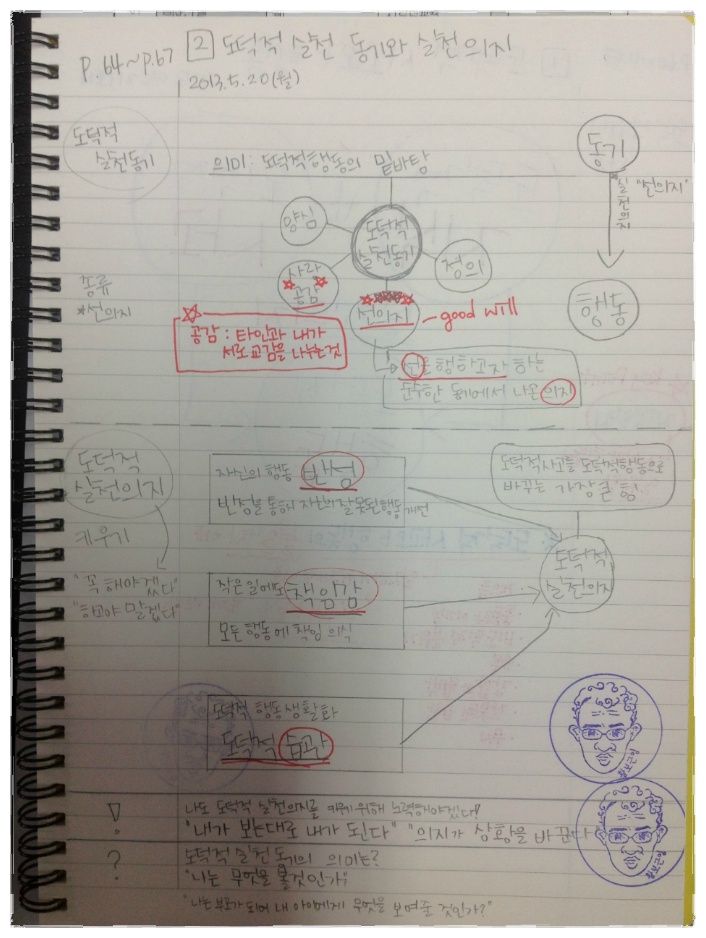 P.64~P.67
2 도덕적 실천 동기와 실천의지
2013.5.20(월)
도덕적
실천동기
의미: 도덕적행동의 밑바탕
동기
실천의지
"선의지"
행동
양심
도덕적
실천동기
정의
사랑
공감
선의지
good will
종류
*선의지
공감 : 타인과 내가
서로 교감을 나누는것
선을 행하고자 하는
순수한 동기에서 나온 의지
도덕적
실천의지
키우기
"꼭 해야겠다"
"하고야 말겠다"
자신의 행동 반성
반성을 통해 자신의 잘못된 행동 개선
작은 일에도 책임감
모든 행동에 책임 의식
도덕적 행동 생활화
도덕적 습관
도덕적사고를 도덕적행동으로
바꾸는 가장 큰 힘
도덕적
실천의지
!
나도 도덕적 실천의지를 키우기 위해 노력해야겠다!
"내가 보는대로 내가 된다" "의지가 상황을 바꾼다"
?
도덕적 실천 동기의 의미는?
"나는 무엇을 볼것인가?"
"나는 부모가 되어 내 아이에게 무엇을 보여줄 것인가?"